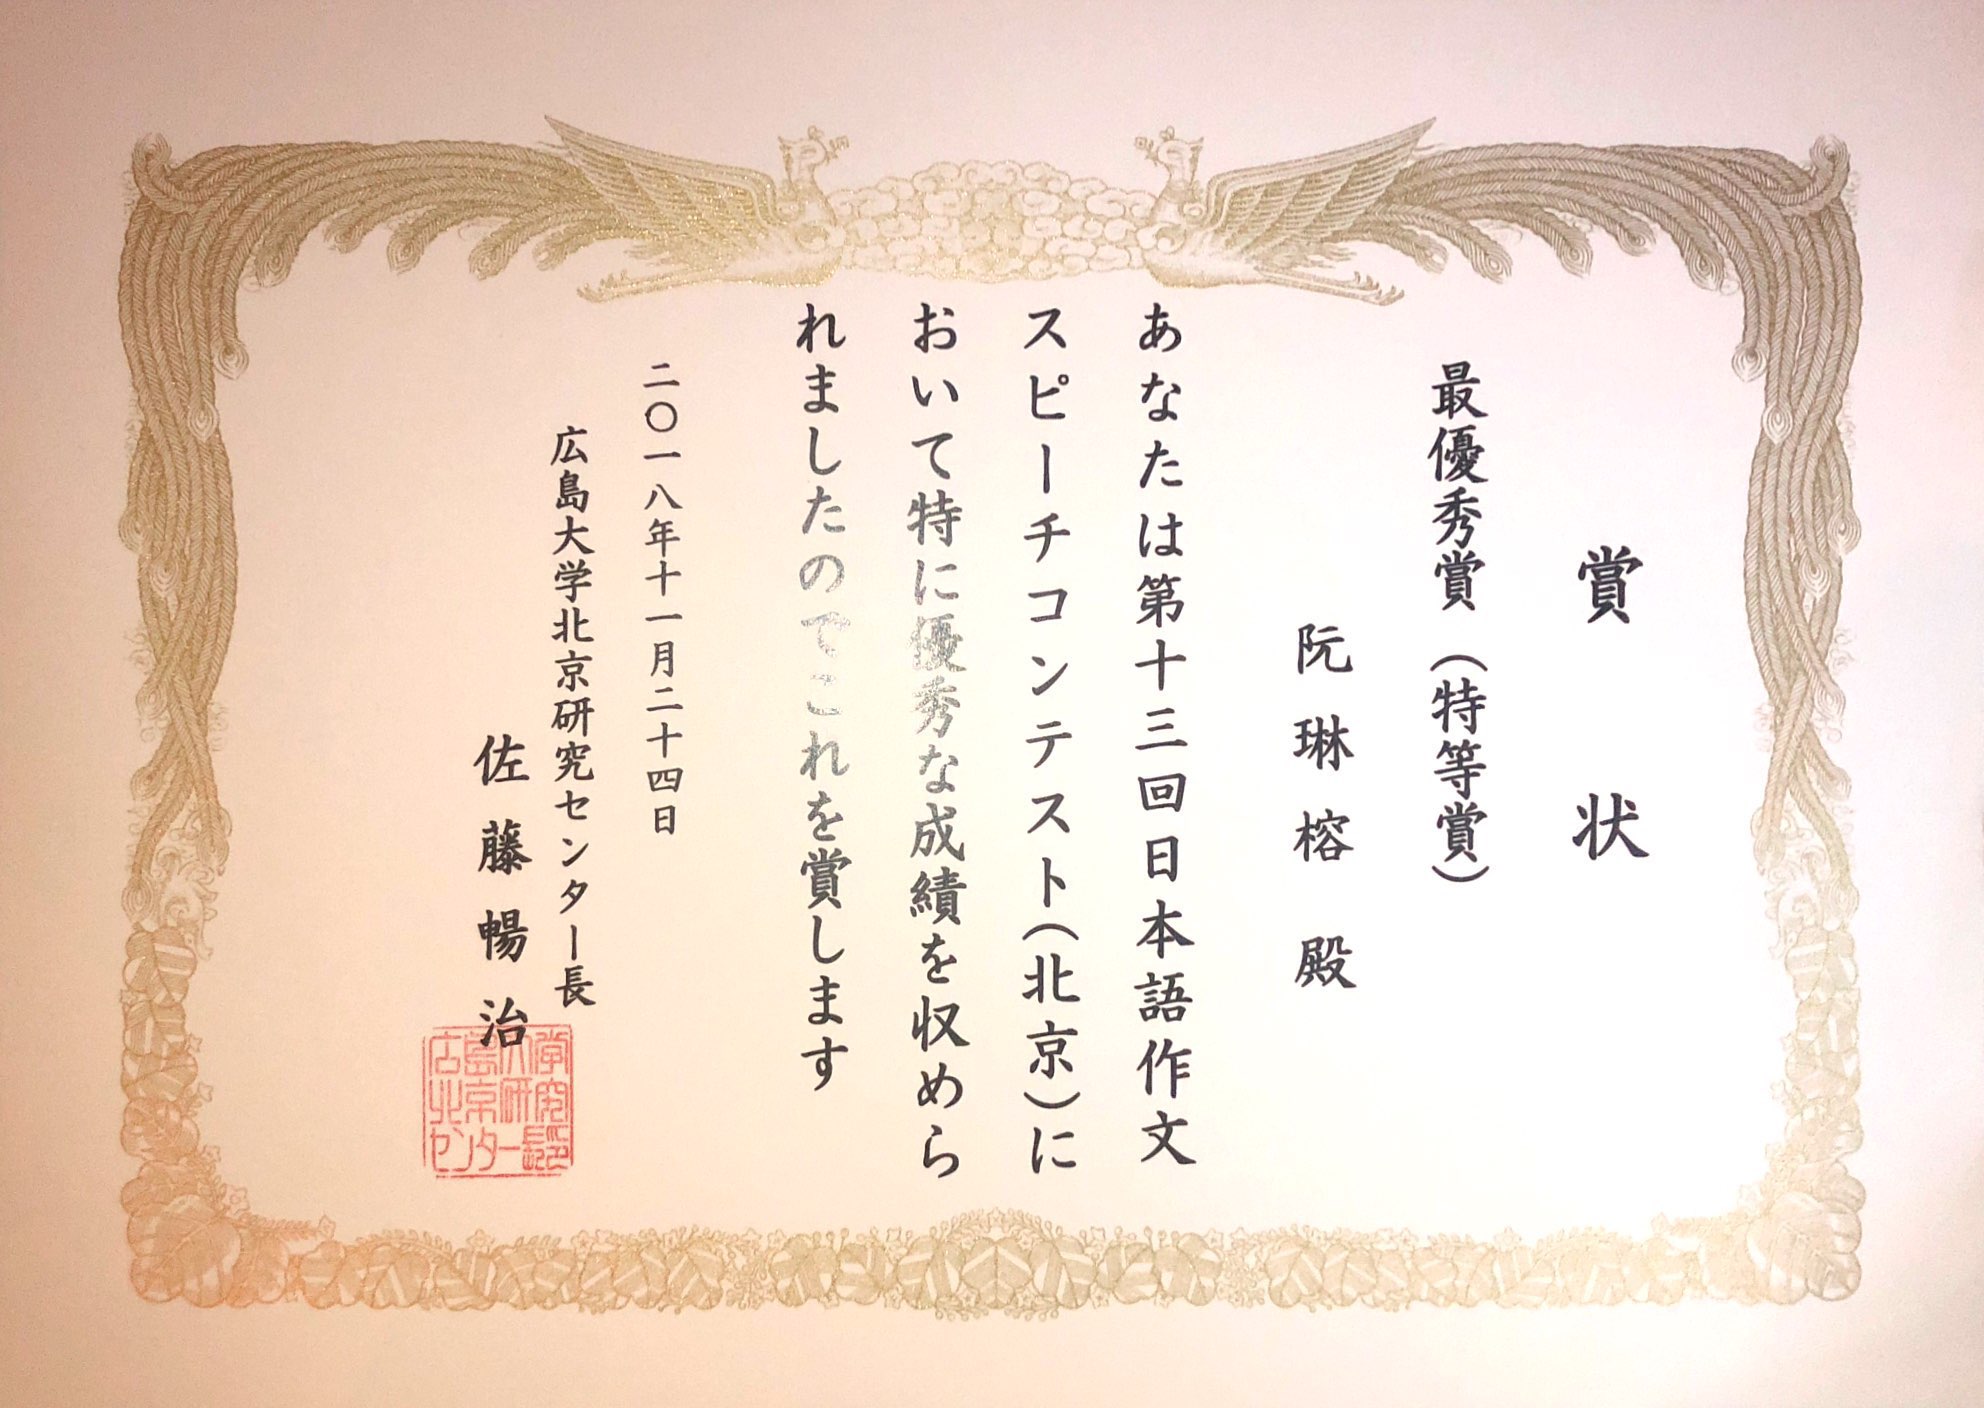 賞状
最優秀賞（特等賞）
阮琳榕殿
あなたは第十三回日本語作文
スピーチコンテスト（北京）に
おいて特に優秀な成績を収めら
れましたのでこれを賞します
二〇一八年十一月二十四日
広島大学北京研究センター長
佐藤暢治
広島大学
北京研究
センター長印